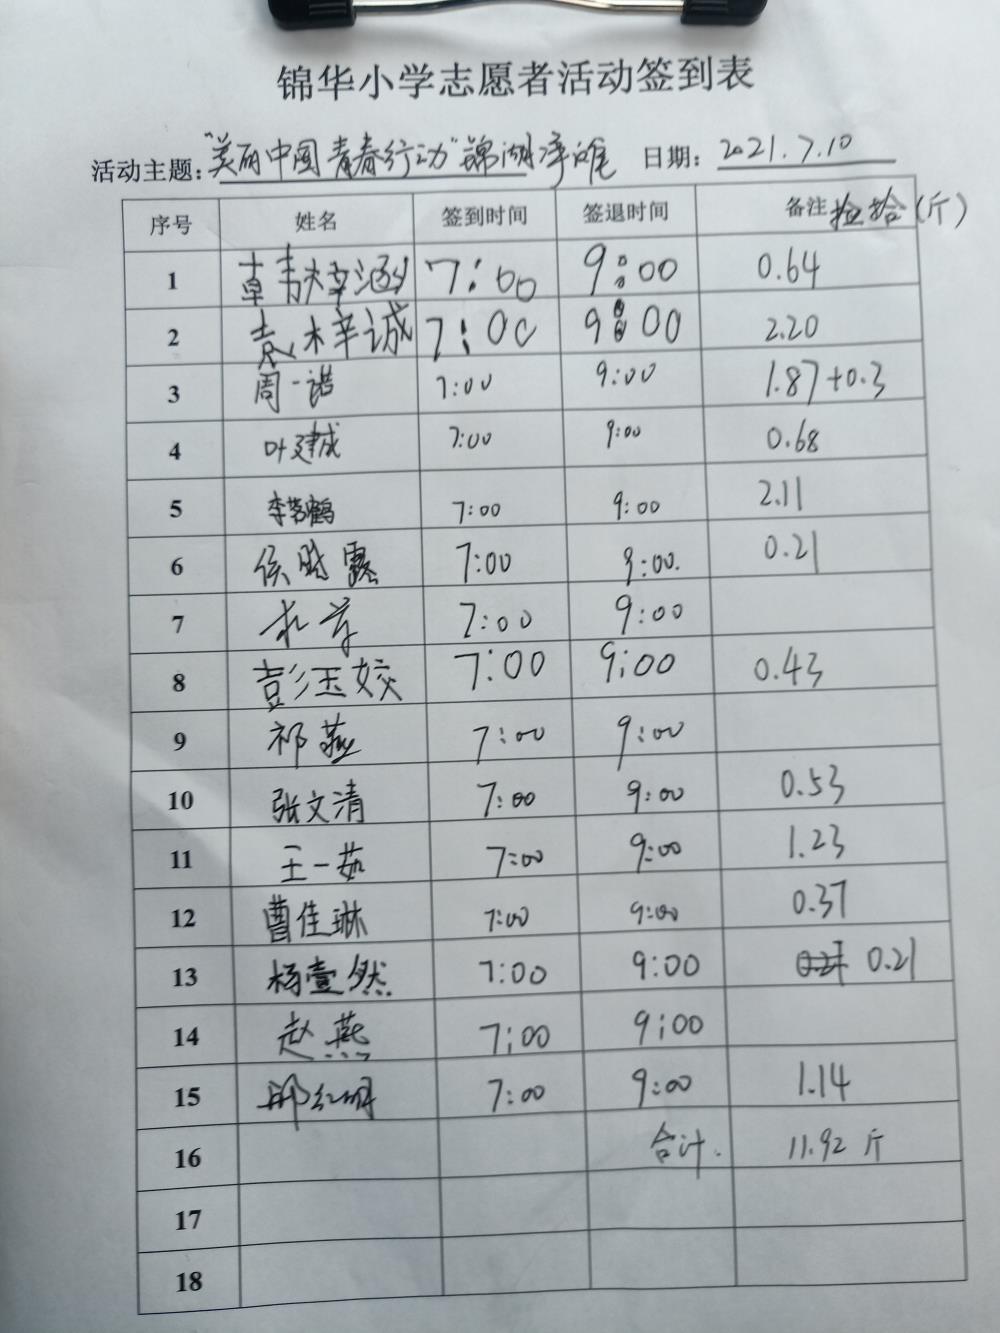 锦华小学志愿者活动签到表
活动主题："美丽中国 青春行动"锦湖净滩 日期：2021.7.10
序号 姓名 签到时间 签退时间 备注 捡拾(斤)
1 7:00 9:00 0.64
2 袁梓诚 7:00 9:00 2.20
3 周一诺 7:00 9:00 1.87+0.3
4 叶建成 7:00 9:00 0.68
5 7:00 9:00 2.11
6 侯 露 7:00 9:00. 0.21
7 7:00 9:00
8 彭玉姣 7:00 9:00 0.43
9 祁燕 7:00 9:00
10 张文清 7:00 9:00 0.53
11 王一茹 7:00 9:00 1.23
12 曹佳琳 7:00 9:00 0.37
13 杨壹然 7:00 9:00 0.21
14 赵燕 7:00 9:00
15 邱红明 7:00 9:00 1.14
16 合计. 11.92 斤
17
18